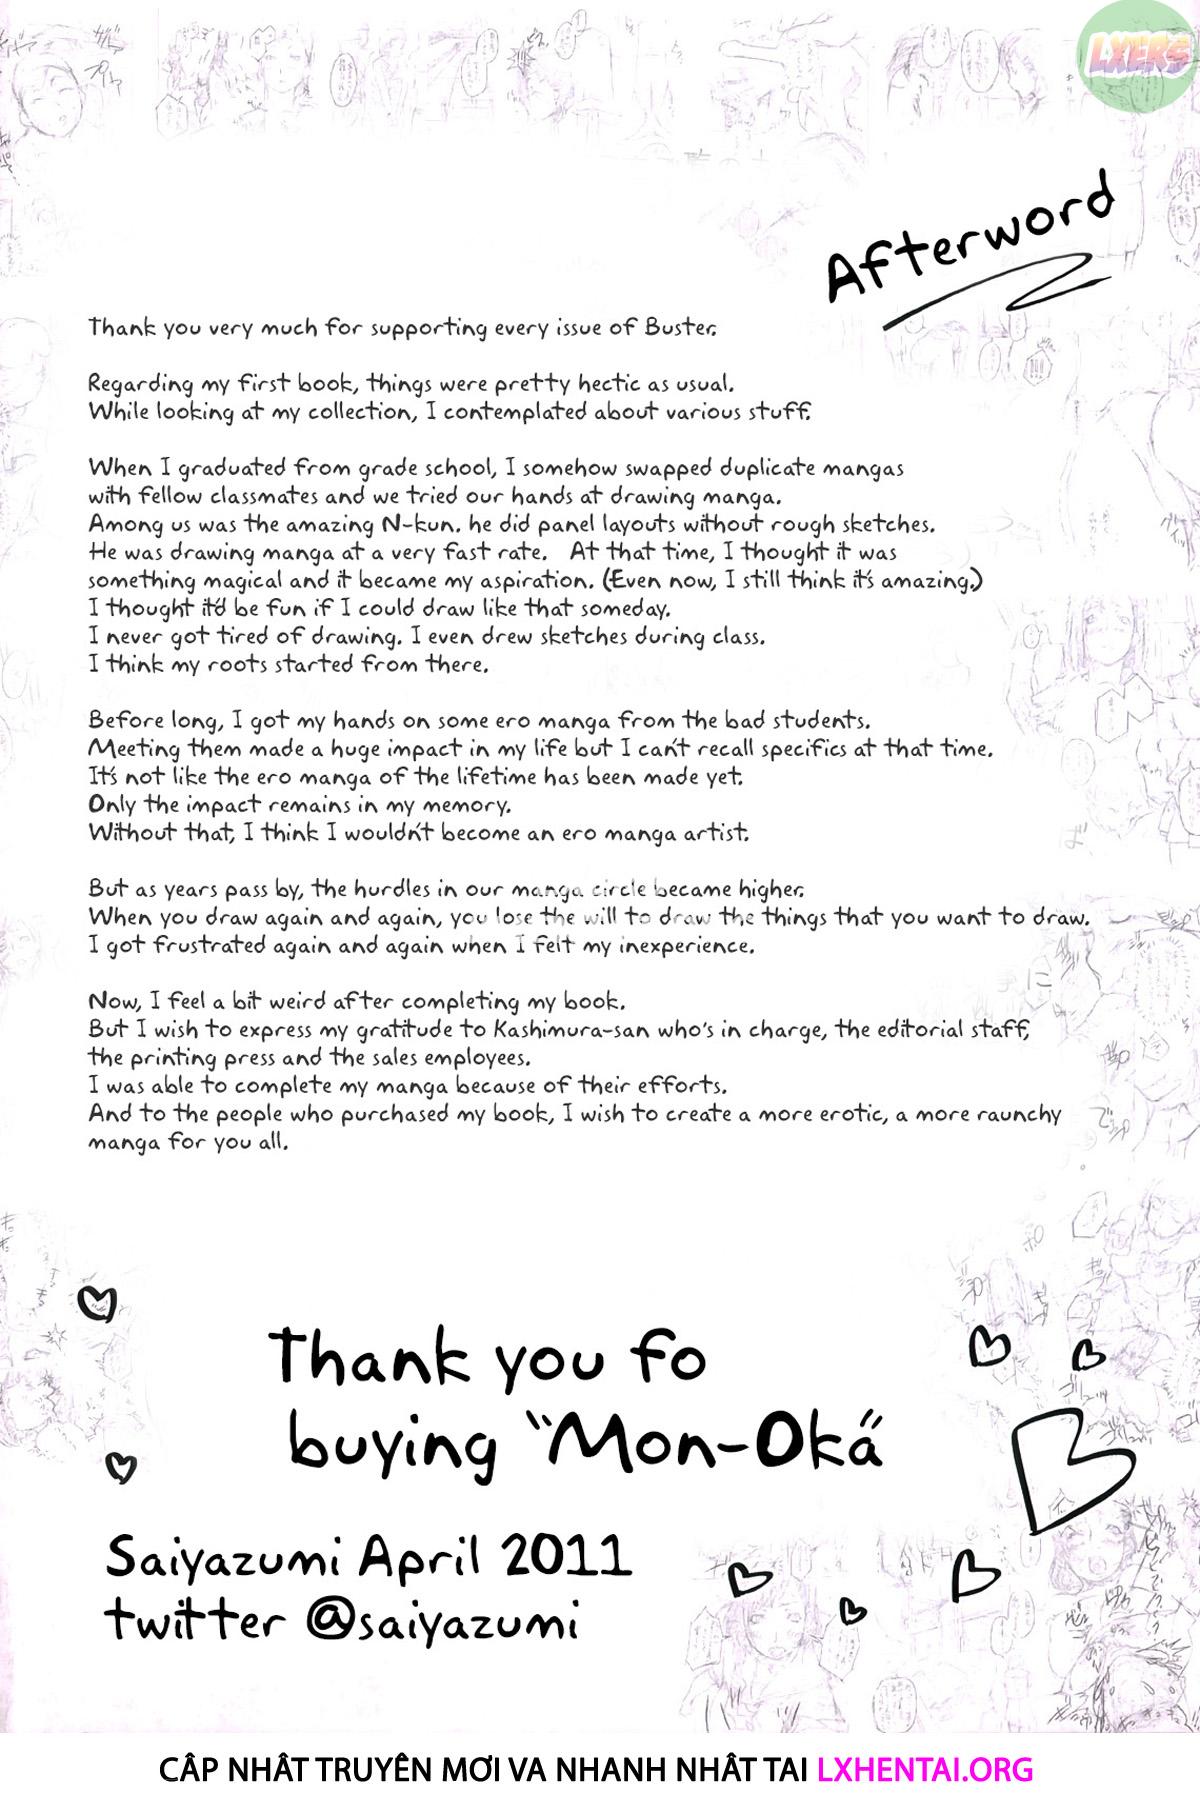 LXERS
Afterword
Thank you very much for supporting every issue of Buster.
Regarding my first book, things were pretty hectic as usual.
While looking at my collection, I contemplated about various stuff.
When I graduated from grade school, I somehow swapped duplicate mangas
with fellow classmates and we tried our hands at drawing manga.
Among us was the amazing N-kun. he did panel layouts without rough sketches.
He was drawing manga at a very fast rate. At that time, I thought it was
something magical and it became my aspiration. (Even now, I still think it's amazing.)
I thought it'd be fun if I could draw like that someday.
I never got tired of drawing. I even drew sketches during class.
I think my roots started from there.
Before long, I got my hands on some ero manga from the bad students.
Meeting them made a huge impact in my life but I can't recall specifics at that time.
It's not like the ero manga of the lifetime has been made yet.
Only the impact remains in my memory.
Without that, I think I wouldn't become an ero manga artist.
But as years pass by, the hurdles in our manga circle became higher.
When you draw again and again, you lose the will to draw the things that you want to draw.
I got frustrated again and again when I felt my inexperience.
Now, I feel a bit weird after completing my book.
But I wish to express my gratitude to Kashimura-san who's in charge, the editorial staff,
the printing press and the sales employees.
I was able to complete my manga because of their efforts.
And to the people who purchased my book, I wish to create a more erotic, a more raunchy
manga for you all.
Thank you fo
buying "Mon-Oka"
Saiyazumi April 2011
twitter @saiyazumi
CÂP NHÂT TRUYÊN MƠI VA NHANH NHÂT TAI LXHENTAI.ORG